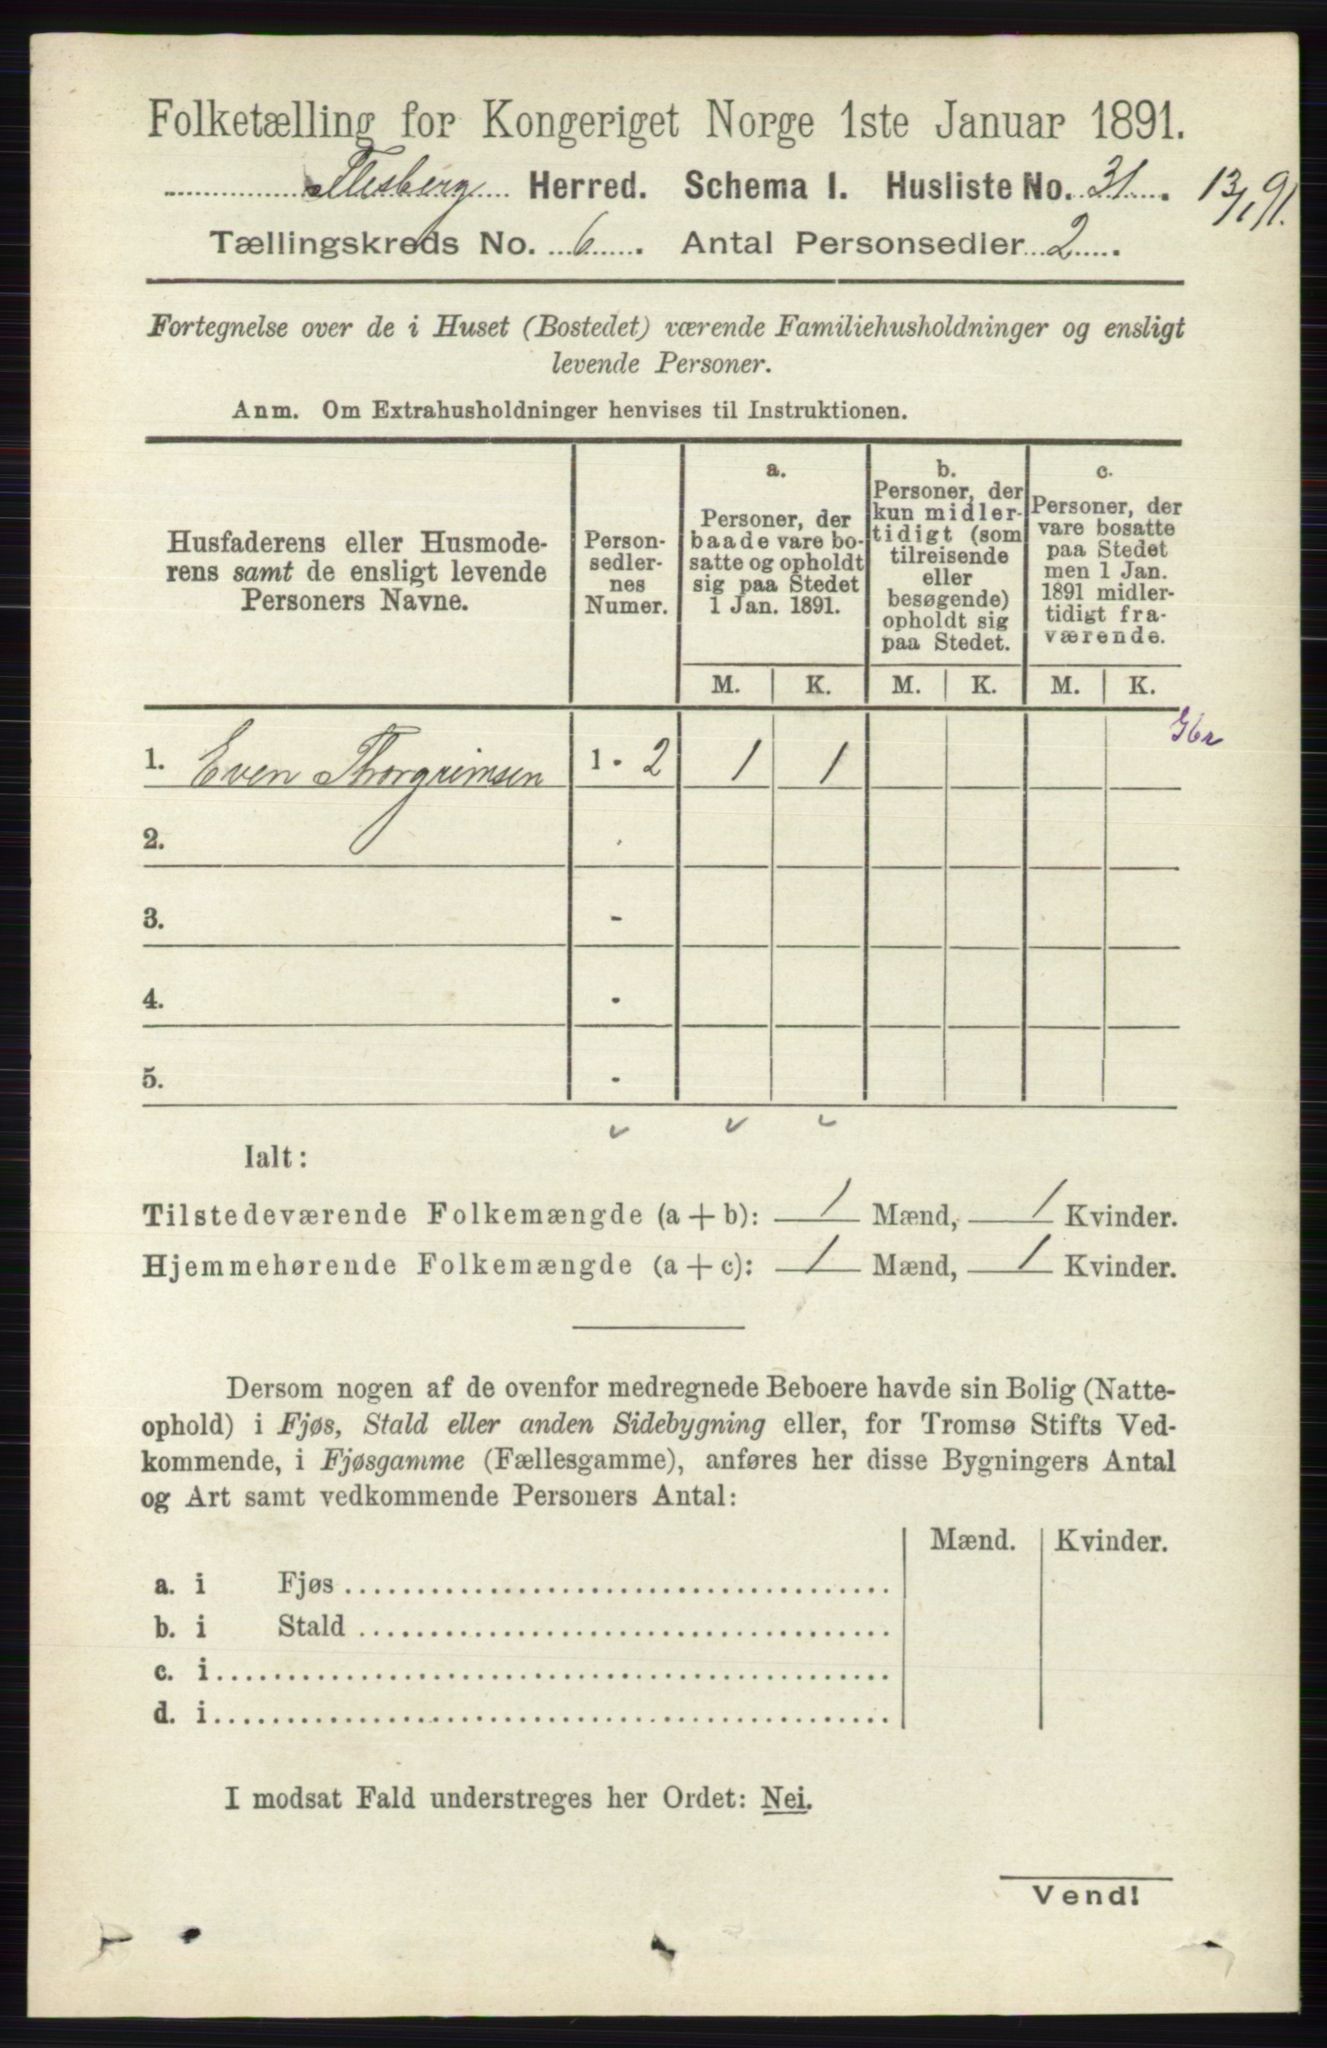 Folketælling for Kongeriget Norge 1ste Januar 1891.
Flesberg Herred. Schema I. Husliste No. 31. 13/1 91.
Tællingskreds No. 6. Antal Personsedler 2.
Fortegnelse over de i Huset (Bostedet) værende Familiehusholdninger og ensligt
levende Personer.
Anm. Om Extrahusholdninger henvises til Instruktionen.
Husfaderens eller Husmode-
rens samt de ensligt levende
Personers Navne.
Person-
sedler-
nes
Numer.
a.
Personer, der
baade vare bo-
satte og opholdt
sig paa Stedet
1 Jan. 1891.
b.
Personer, der
kun midler-
tidigt (som
tilreisende
eller
besøgende)
opholdt sig
paa Stedet.
c.
Personer, der
vare bosatte
paa Stedet
men 1 Jan.
1891 midler-
tidigt fra-
værende.
M. K. M. K. M. K.
Gbr
1. Even Thorgrimsen 1 - 2 1 1
2.
3. -
4. -
5. -
Ialt:
Tilstedeværende Folkemængde (a + b): 1 Mænd, 1 Kvinder.
Hjemmehørende Folkemængde (a + c): 1 Mænd, 1 Kvinder.
Dersom nogen af de ovenfor medregnede Beboere havde sin Bolig (Natte-
ophold) i Fjøs, Stald eller anden Sidebygning eller, for Tromsø Stifts Ved-
kommende, i Fjøsgamme (Fællesgamme), anføres her disse Bygningers Antal
og Art samt vedkommende Personers Antal:
Mænd. Kvinder.
a. i Fjøs
b. i Stald
c. i
d. i
I modsat Fald understreges her Ordet: Nei.
Vend!